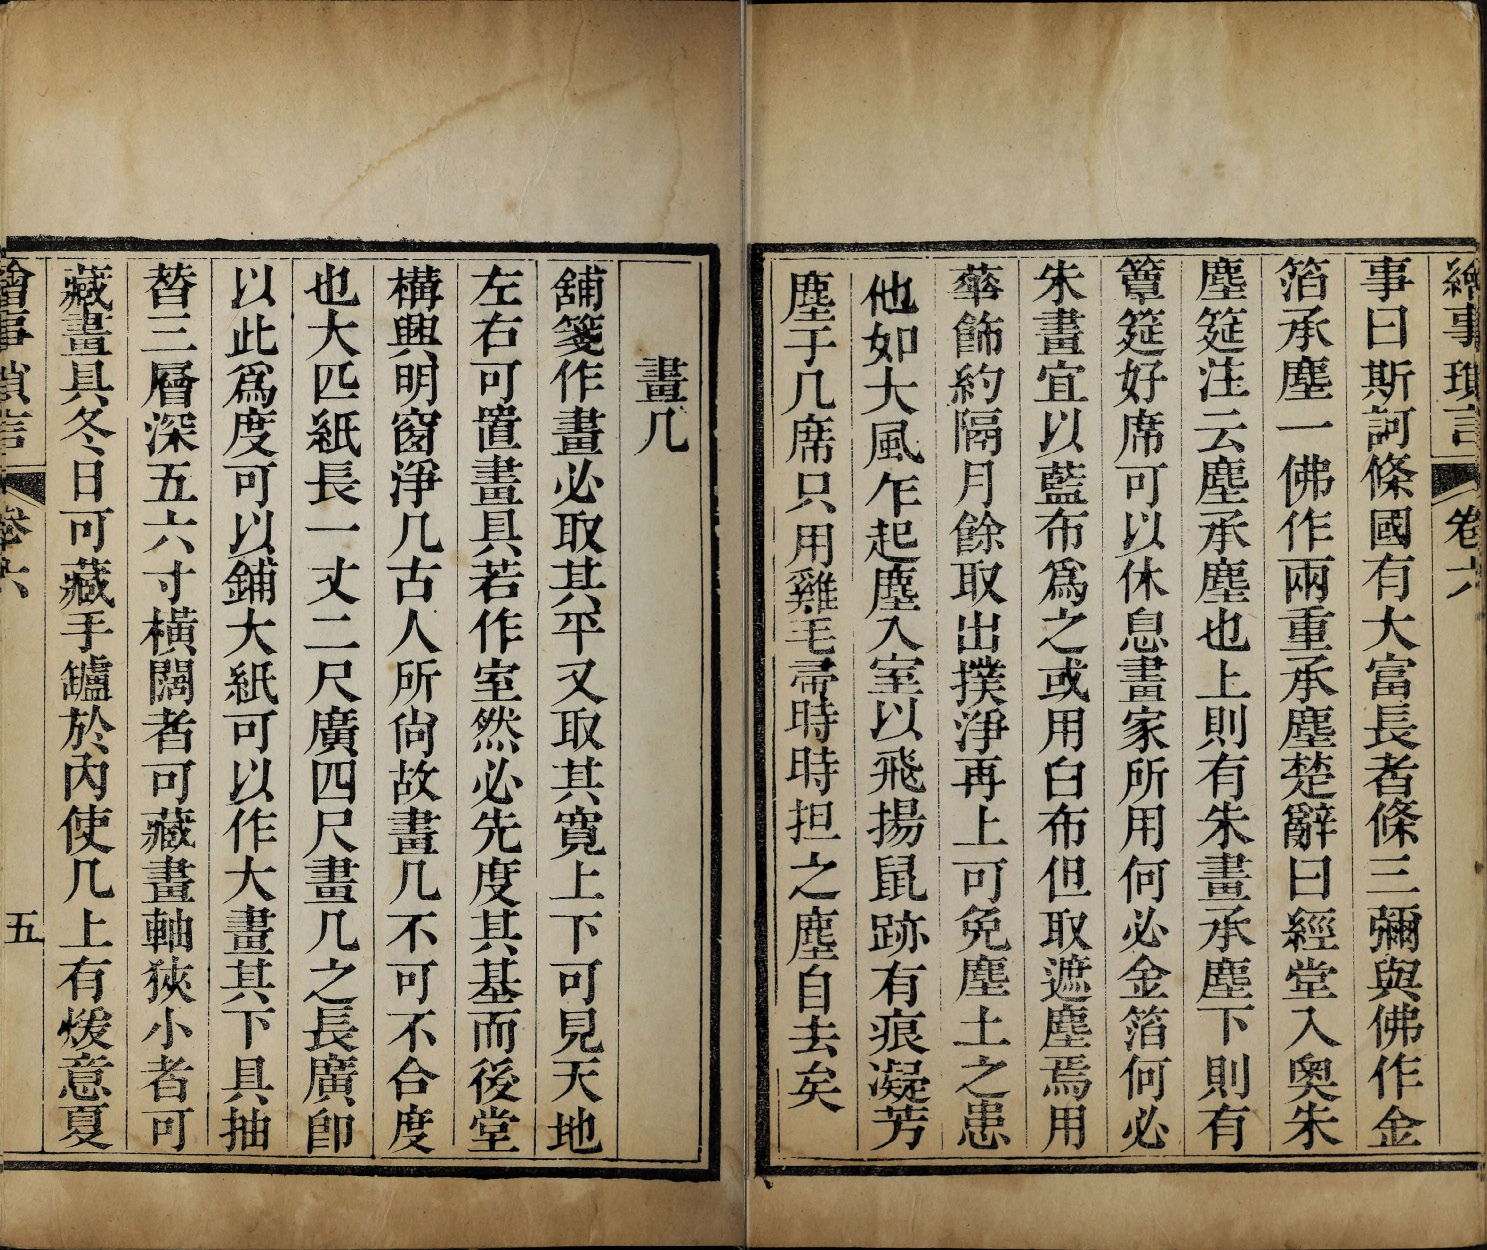 繪事瑣言 卷六
事曰斯訶條國有大富長者條三彌與佛作金
箔承塵一佛作兩重承塵楚辭曰經堂入奧朱
塵筵注云塵承塵也上則有朱畫承塵下則有
簟筵好席可以休息畫家所用何必金箔何必
朱畫宜以藍布為之或用白布但取遮塵焉用
華飾約隔月餘取出撲淨再上可免塵土之患
他如大風乍起塵入室以飛揚鼠跡有痕凝芳
塵于几席只用雞毛帚時時担之塵自去矣
畫几
舖箋作畫必取其平又取其寬上下可見天地
左右可置畫具若作室然必先度其基而後堂
構興明窗淨几古人所尙故畫几不可不合度
也大匹紙長一丈二尺廣四尺畫几之長廣卽
以此爲度可以鋪大紙可以作大畫其下具抽
替三層深五六寸橫闊者可藏畫軸狹小者可
藏畫具冬日可藏手鑪於內使几上有煖意夏
繪事瑣言 卷六 五